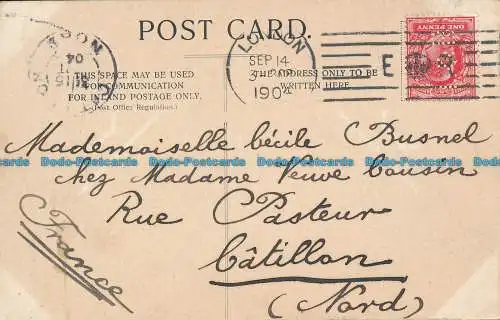 POST CARD.
THIS SPACE MAY BE USED
FOR COMMUNICATION
FOR INLAND POSTAGE ONLY.
(Post Office Regulation.)
THE ADDRESS ONLY TO BE
WRITTEN HERE.
LONDON
SEP 14
1904
E
ONE PENNY
04
15
Mademoiselle Cécile Busnel
chez Madame Veuve Cousin
Rue Pasteur
Câtillon
(Nord)
France
Dodo-Postcards Dodo-Postcards Dodo-Postcards Dodo-Postcards Dodo-Postcards Dodo-Postcards